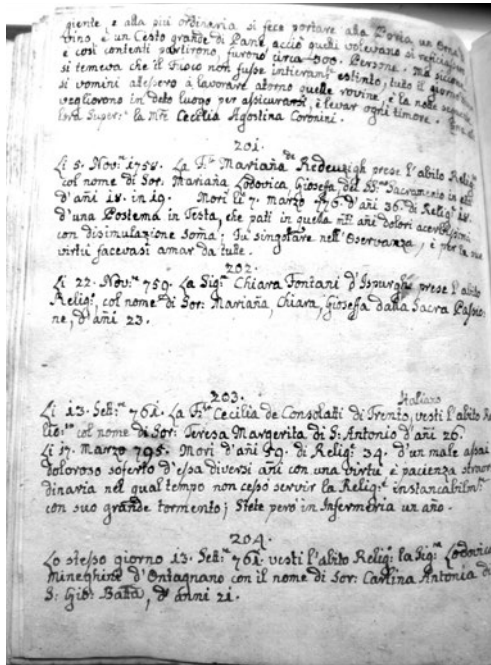 giente, e alla più ordineria si fece portare alla Porta un
vino, e un Cesto grande di Pane, acciò quelli volevano si
e così contenti partirono, furono circa 300. Persone. Ma
si temeva che il Fuoco non fusse intieramt. estinto, tutto il giorno
si vomini attesero à lavorare atorno quelle rovine, e la notte
vegliorono in deto luogo per assicurarsi, è levar ogni timore.
Super: la Cecilia Agostina Coronini.
201.
Li 5. Nov: 1758. La Mariaña de prese l'abito Relig:
col nome di Sor: Mariaña Lodovica, Giosefa del SS: Sacramento in età
d'añi 18. in 19. Morì li 7. marzo 776. d'añi 36. di Relig: 18.
d'una Postema in Testa, che patì in questa añi dolori acerbissimi
con disimulazione soma. Fu singolare nell'Osservanza, è per la sue
virtù facevasi amar da tutte.
202.
Li 22. Nov: 759. La Sig: Chiara Fontani d'Ispurgh prese l'abito
Relig: col nome di Sor: Mariaña, Chiara, Gioseffa dalla Sacra Passio-
ne, d'añi 23.
203.
Italiano
Li 13. Sett: 761. La Cecilia de Consolatti di Trento, vestì l'abito Re
col nome di Sor: Teresa Margerita di S: Antonio d'añi 26.
Li 17. Marzo 795. Morì d'añi 59. di Relig: 34. d'un male assai
doloroso soferto d'essa diversi añi con una virtù è pacienza straor
dinaria nel qual tempo non cessò servir la Relig: instancabilm:
con suo grande tormento; stete però in Infermeria un año.
204.
Lo stesso giorno 13. Sett: 761. vestì l'abito Relig: la Sig: Lodovica
Mineghine d'Ontagnano con il nome di Sor: Carlina Antonia di
S: Gio: Batta, d'anni 21.